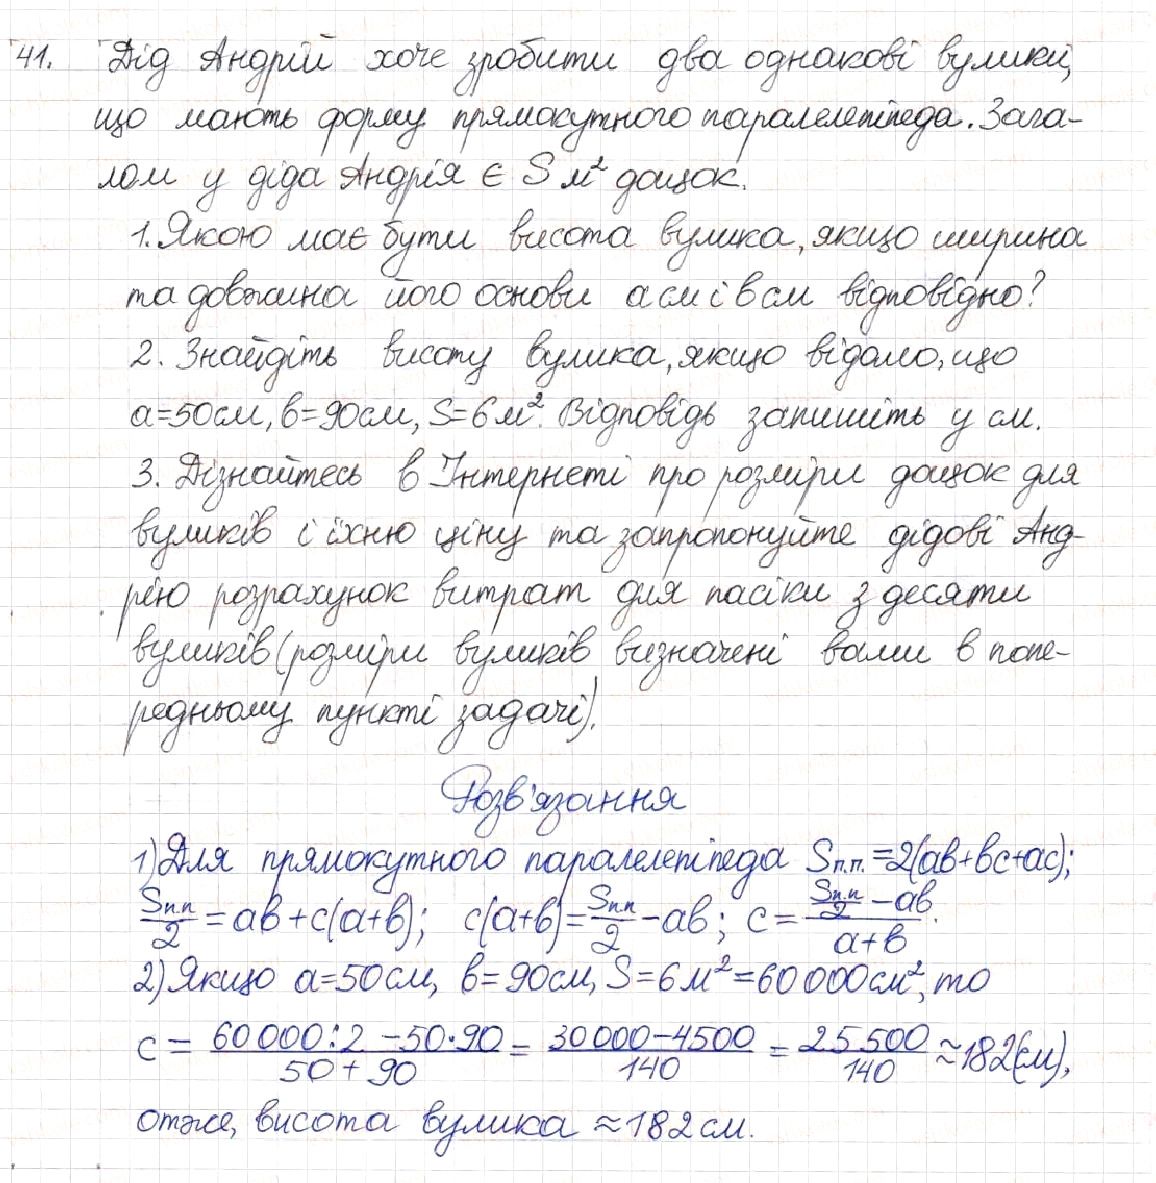 41. Дід Андрій хоче зробити два однакові вулики,
що мають форму прямокутного паралелепіпеда. Зага-
лом у діда Андрія є S м² дощок.
1. Якою має бути висота вулика, якщо ширина
та довжина його основи a см і b см відповідно?
2. Знайдіть висоту вулика, якщо відомо, що
a=50см, b=90см, S=6м². Відповідь запишіть у см.
3. Дізнайтесь в Інтернеті про розміри дощок для
вуликів і їхню ціну та запропонуйте дідові Анд-
рію розрахунок витрат для пасіки з десяти
вуликів (розміри вуликів визначені вами в попе-
редньому пункті задачі).
Розв'язання
1) Для прямокутного паралелепіпеда Sп.п.=2(ab+bc+ac);
Sп.п/2 = ab+c(a+b); c(a+b)=Sп.п/2 -ab; c=(Sп.п/2 -ab)/(a+b).
2) Якщо a=50см, b=90см, S=6м²=60000см², то
c = (60000:2 -50·90)/(50+90) = (30000-4500)/140 = 25500/140 ≈182(см),
отже, висота вулика ≈182см.